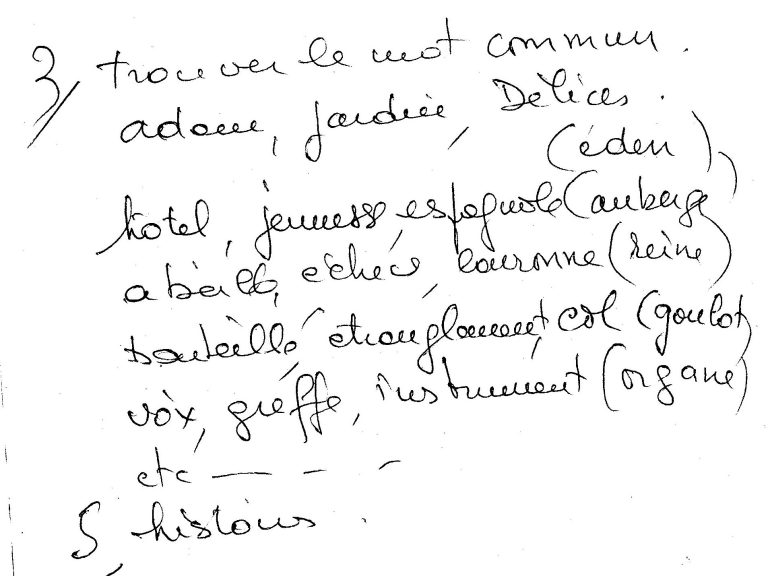 3, trouver le mot commun.
adam, jardin, Délices.
(éden),
hotel, jeunesse, espagnole (auberge)
abeille, échecs, couronne (reine)
bouteille, étranglement, col (goulot)
voix, greffe, instrument (organe)
etc — - -
5, histoires.